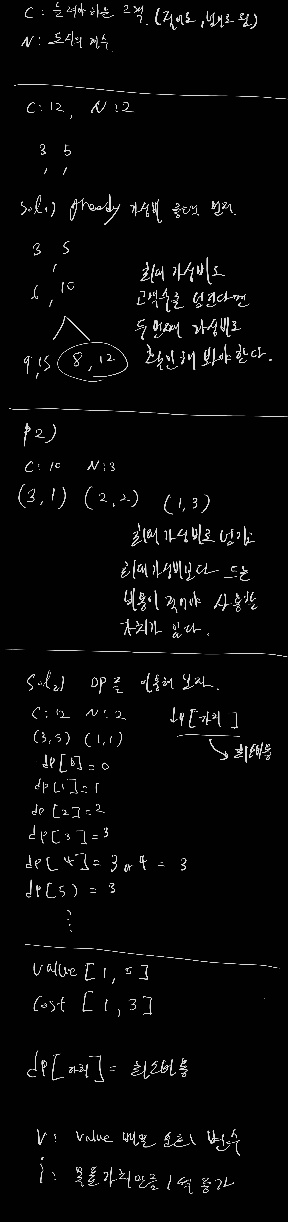 C: 늘려야 하는 고객. (적어도, 넘어도 됨)
N: 도시의 개수.
C: 12, N: 2
3 5
, ,
Sol1) greedy 가성비 좋은 먼저
3 5
,
6, 10
9, 15 8, 12
최대 가성비로
고객수를 넘긴다면
두 번째 가성비로
확인해 봐야 한다.
P2)
C: 10 N: 3
(3,1) (2,2) (1,3)
최대 가성비로 넘기고
최대 가성비보다 드는
비용이 적어야 사용할
가치가 있다.
Sol2) DP를 이용해 보자.
C: 12 N: 2 dp[가치]
(3,5) (1,1) 최소비용
dp[0] = 0
dp[1] = 1
dp[2] = 2
dp[3] = 3
dp[4] = 3 or 4 = 3
dp[5] = 3
value [1, 5]
Cost [1, 3]
dp[가치] = 최소비용
V: value 배열 순회 변수
i: 물품가치만큼 1씩 증가